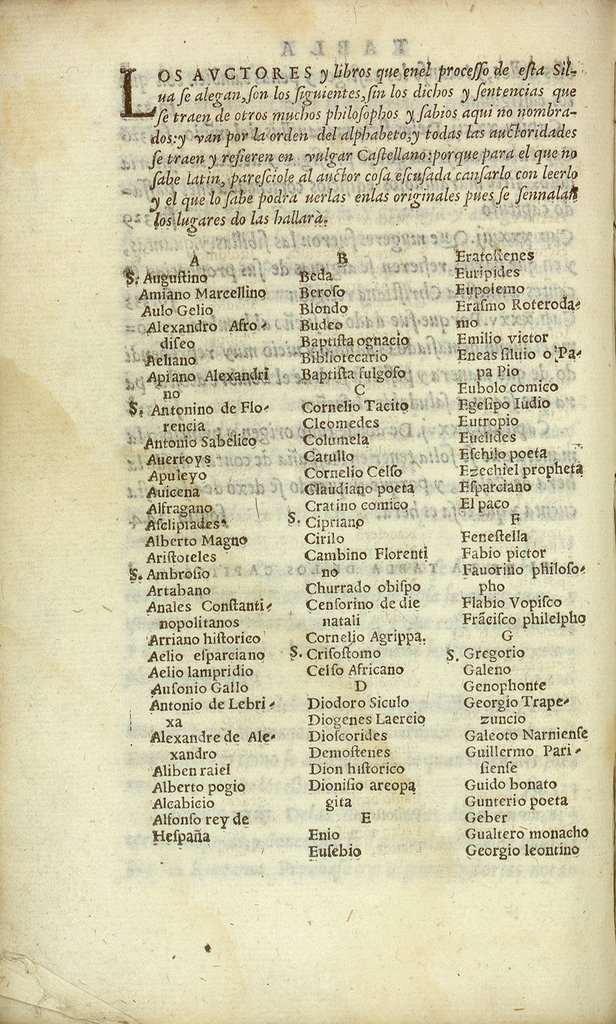 LOS AVCTORES y libros que enel proceſſo de eſta Sil-
ua ſe alegan, ſon los ſiguientes, ſin los dichos y ſentencias que
ſe traen de otros muchos philoſophos y ſabios aqui no nombra-
dos: y van por la orden del alphabeto, y todas las auctoridades
ſe traen y refieren en vulgar Caſtellano: porque para el que no
ſabe latin, pareſciole al auctor coſa eſcuſada canſarlo con leerlo
y el que lo ſabe podra uerlas enlas originales pues ſe ſennalan
los lugares do las hallara.
A
S. Auguſtino
Amiano Marcellino
Aulo Gelio
Alexandro Afro-
diſeo
Aeliano
Apiano Alexandri
no
S. Antonino de Flo-
rencia
Antonio Sabelico
Auerroys
Apuleyo
Auicena
Alfragano
Aſclipiades
Alberto Magno
Ariſtoteles
S. Ambroſio
Artabano
Anales Conſtanti-
nopolitanos
Arriano hiſtorico
Aelio eſparciano
Aelio lampridio
Auſonio Gallo
Antonio de Lebri-
xa
Alexandre de Ale-
xandro
Aliben raiel
Alberto pogio
Alcabicio
Alfonſo rey de
Heſpaña
B
Beda
Beroſo
Blondo
Budeo
Baptiſta ognacio
Bibliotecario
Baptiſta fulgoſo
C
Cornelio Tacito
Cleomedes
Columela
Catullo
Cornelio Celſo
Claudiano poeta
Cratino comico
S. Cipriano
Cirilo
Cambino Florenti
no
Churrado obiſpo
Cenſorino de die
natali
Cornelio Agrippa.
S. Criſoſtomo
Celſo Africano
D
Diodoro Siculo
Diogenes Laercio
Dioſcorides
Demoſtenes
Dion hiſtorico
Dioniſio areopa
gita
E
Enio
Euſebio
Eratoſtenes
Euripides
Eupolemo
Eraſmo Roteroda-
mo
Emilio victor
Eneas ſiluio o Pa-
pa Pio
Eubolo comico
Egeſipo Iudio
Eutropio
Euclides
Eſchilo poeta
Ezechiel propheta
Eſparciano
El paco
F
Feneſtella
Fabio pictor
Fauorino philoſo-
pho
Flabio Vopiſco
Frãciſco philelpho
G
S. Gregorio
Galeno
Genophonte
Georgio Trape-
zuncio
Galeoto Narnienſe
Guillermo Pari-
ſienſe
Guido bonato
Gunterio poeta
Geber
Gualtero monacho
Georgio leontino